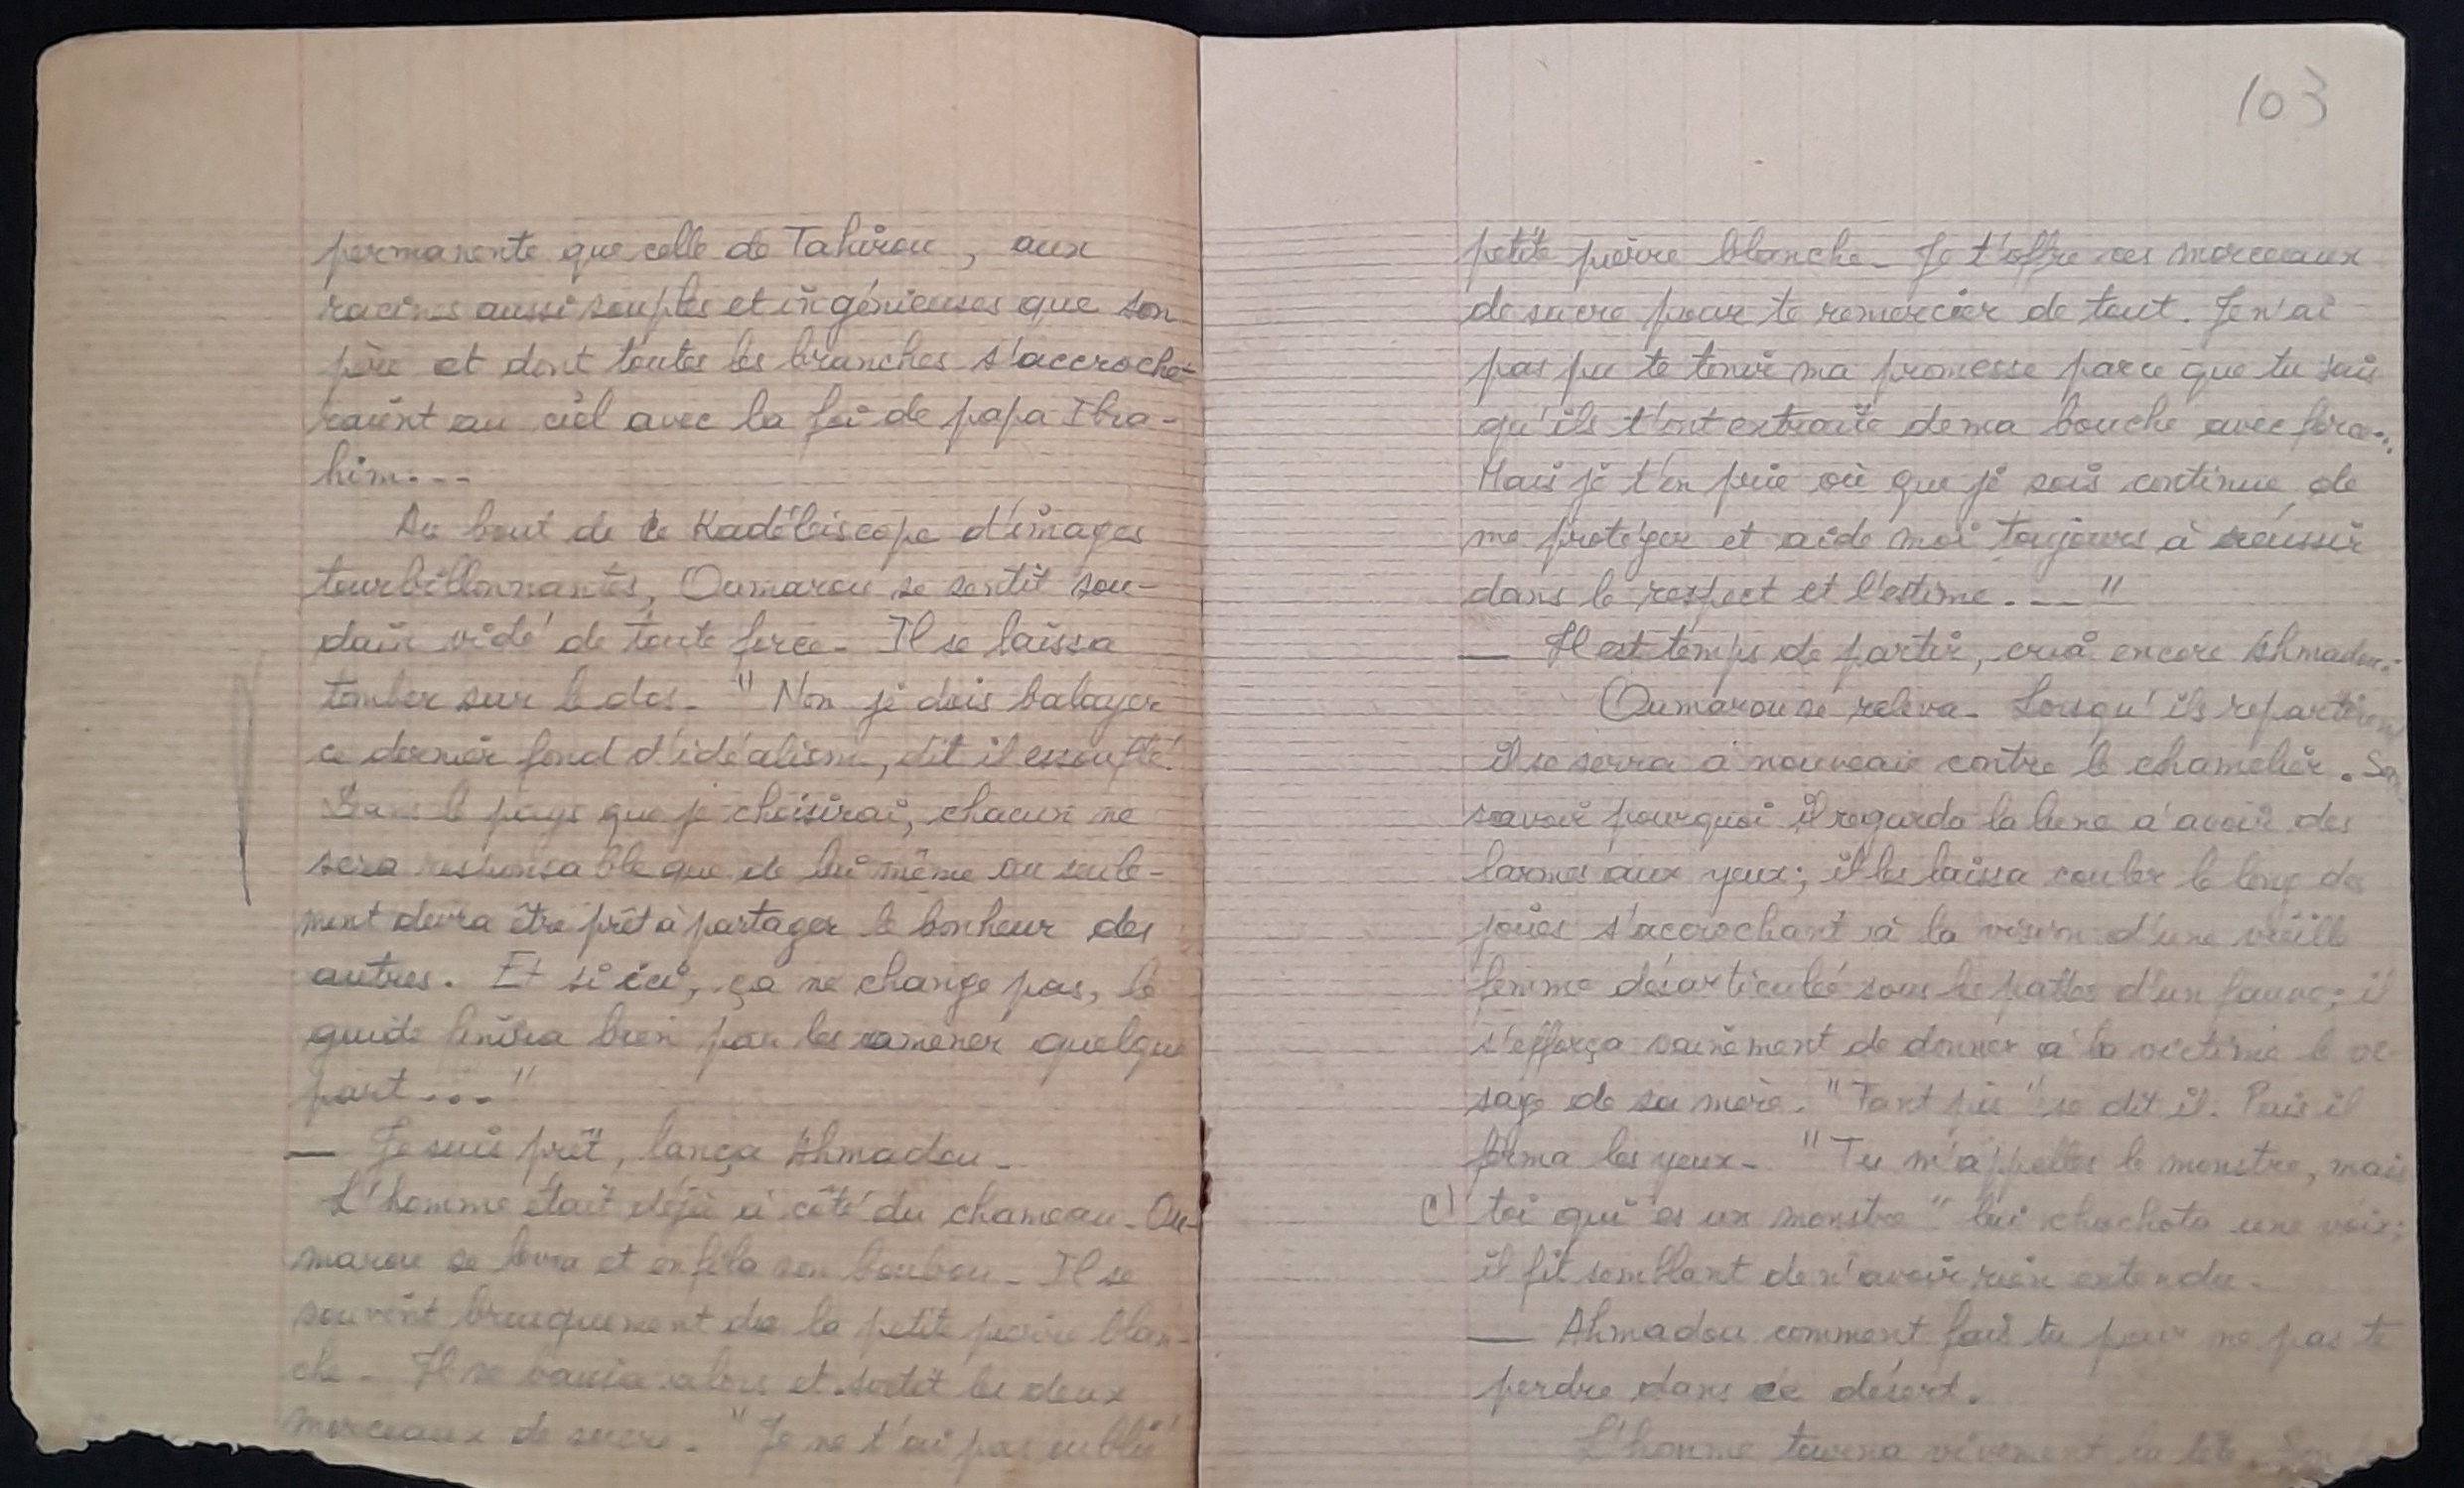 permanente que celle de Tahirou, aux
racines aussi souples et ingénieuses que son
père et dont toutes les branches s'accroche-
raient au ciel avec la foi de papa Ibra-
him...
Au bout de ce Kadéloiscope d'images
tourbillonnantes, Oumarou se sentit sou-
dain vidé de toute force. Il se laissa
tomber sur le dos. "Non je dois balayer
ce dernier fond d'idéalisme, dit il essouflé.
Dans le pays que je choisirai, chacun ne
sera responsable que de lui même ou seule-
ment devra être prêt à partager le bonheur des
autres. Et si ici, ça ne change pas, le
guide finira bien par les ramener quelque
part..."
— Je suis prêt, lança Ahmadou.
L'homme était déjà à côté du chameau. Ou-
marou se leva et enfila son boubou. Il se
souvint brusquement de la petite pierre blan-
che. Il se baissa alors et sortit les deux
morceaux de sucre. "Je ne t'ai pas oublié
103
petite pierre blanche. Je t'offre ces morceaux
de sucre pour te remercier de tout. Je n'ai
pas pu te tenir ma promesse parce que tu sais
qu'ils t'ont extraite de ma bouche avec force...
Mais je t'en prie où que je sois continue de
me protéger et aide moi toujours à réussir
dans le respect et l'estime. — "
— Il est temps de partir, cria encore Ahmadou.
Oumarou se releva. Lorsqu'ils repartirent
il se serra à nouveau contre le chamelier. San
savoir pourquoi il regarda la lune à avoir des
larmes aux yeux; il les laissa couler le long des
joues s'accrochant à la vision d'une vieille
femme désarticulée sous les pattes d'un fauve; il
s'efforça vainement de donner à la victime le vi
sage de sa mère. "Tant pis" se dit il. Puis il
ferma les yeux. "Tu m'appelles le monstre, mais
c) toi qui es un monstre" lui chuchota une voix;
il fit semblant de n'avoir rien entendu.
— Ahmadou comment fais tu pour ne pas te
perdre dans ce désert.
L'homme tourna vivement la tête. Son